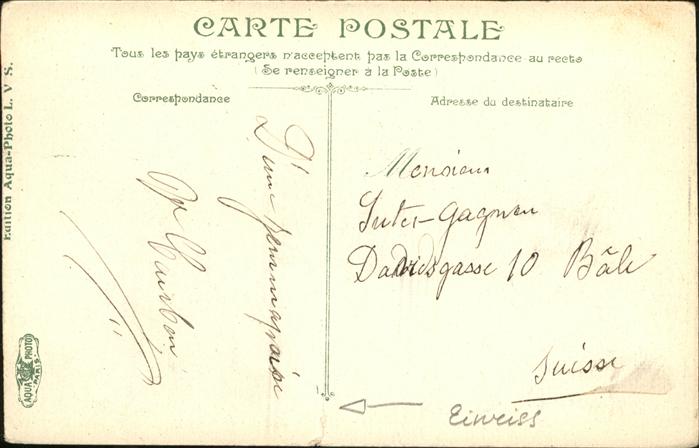 CARTE POSTALE
Tous les pays étrangers n'acceptent pas la Correspondance au recto
(Se renseigner à la Poste)
Correspondance
Adresse du destinataire
Edition Aqua-Photo L. V. S.
D'une
Monsieur
Suter-Gagneu
Davidsgasse 10 Bâle
Suisse
Einreiss
AQUA PHOTO
PARIS